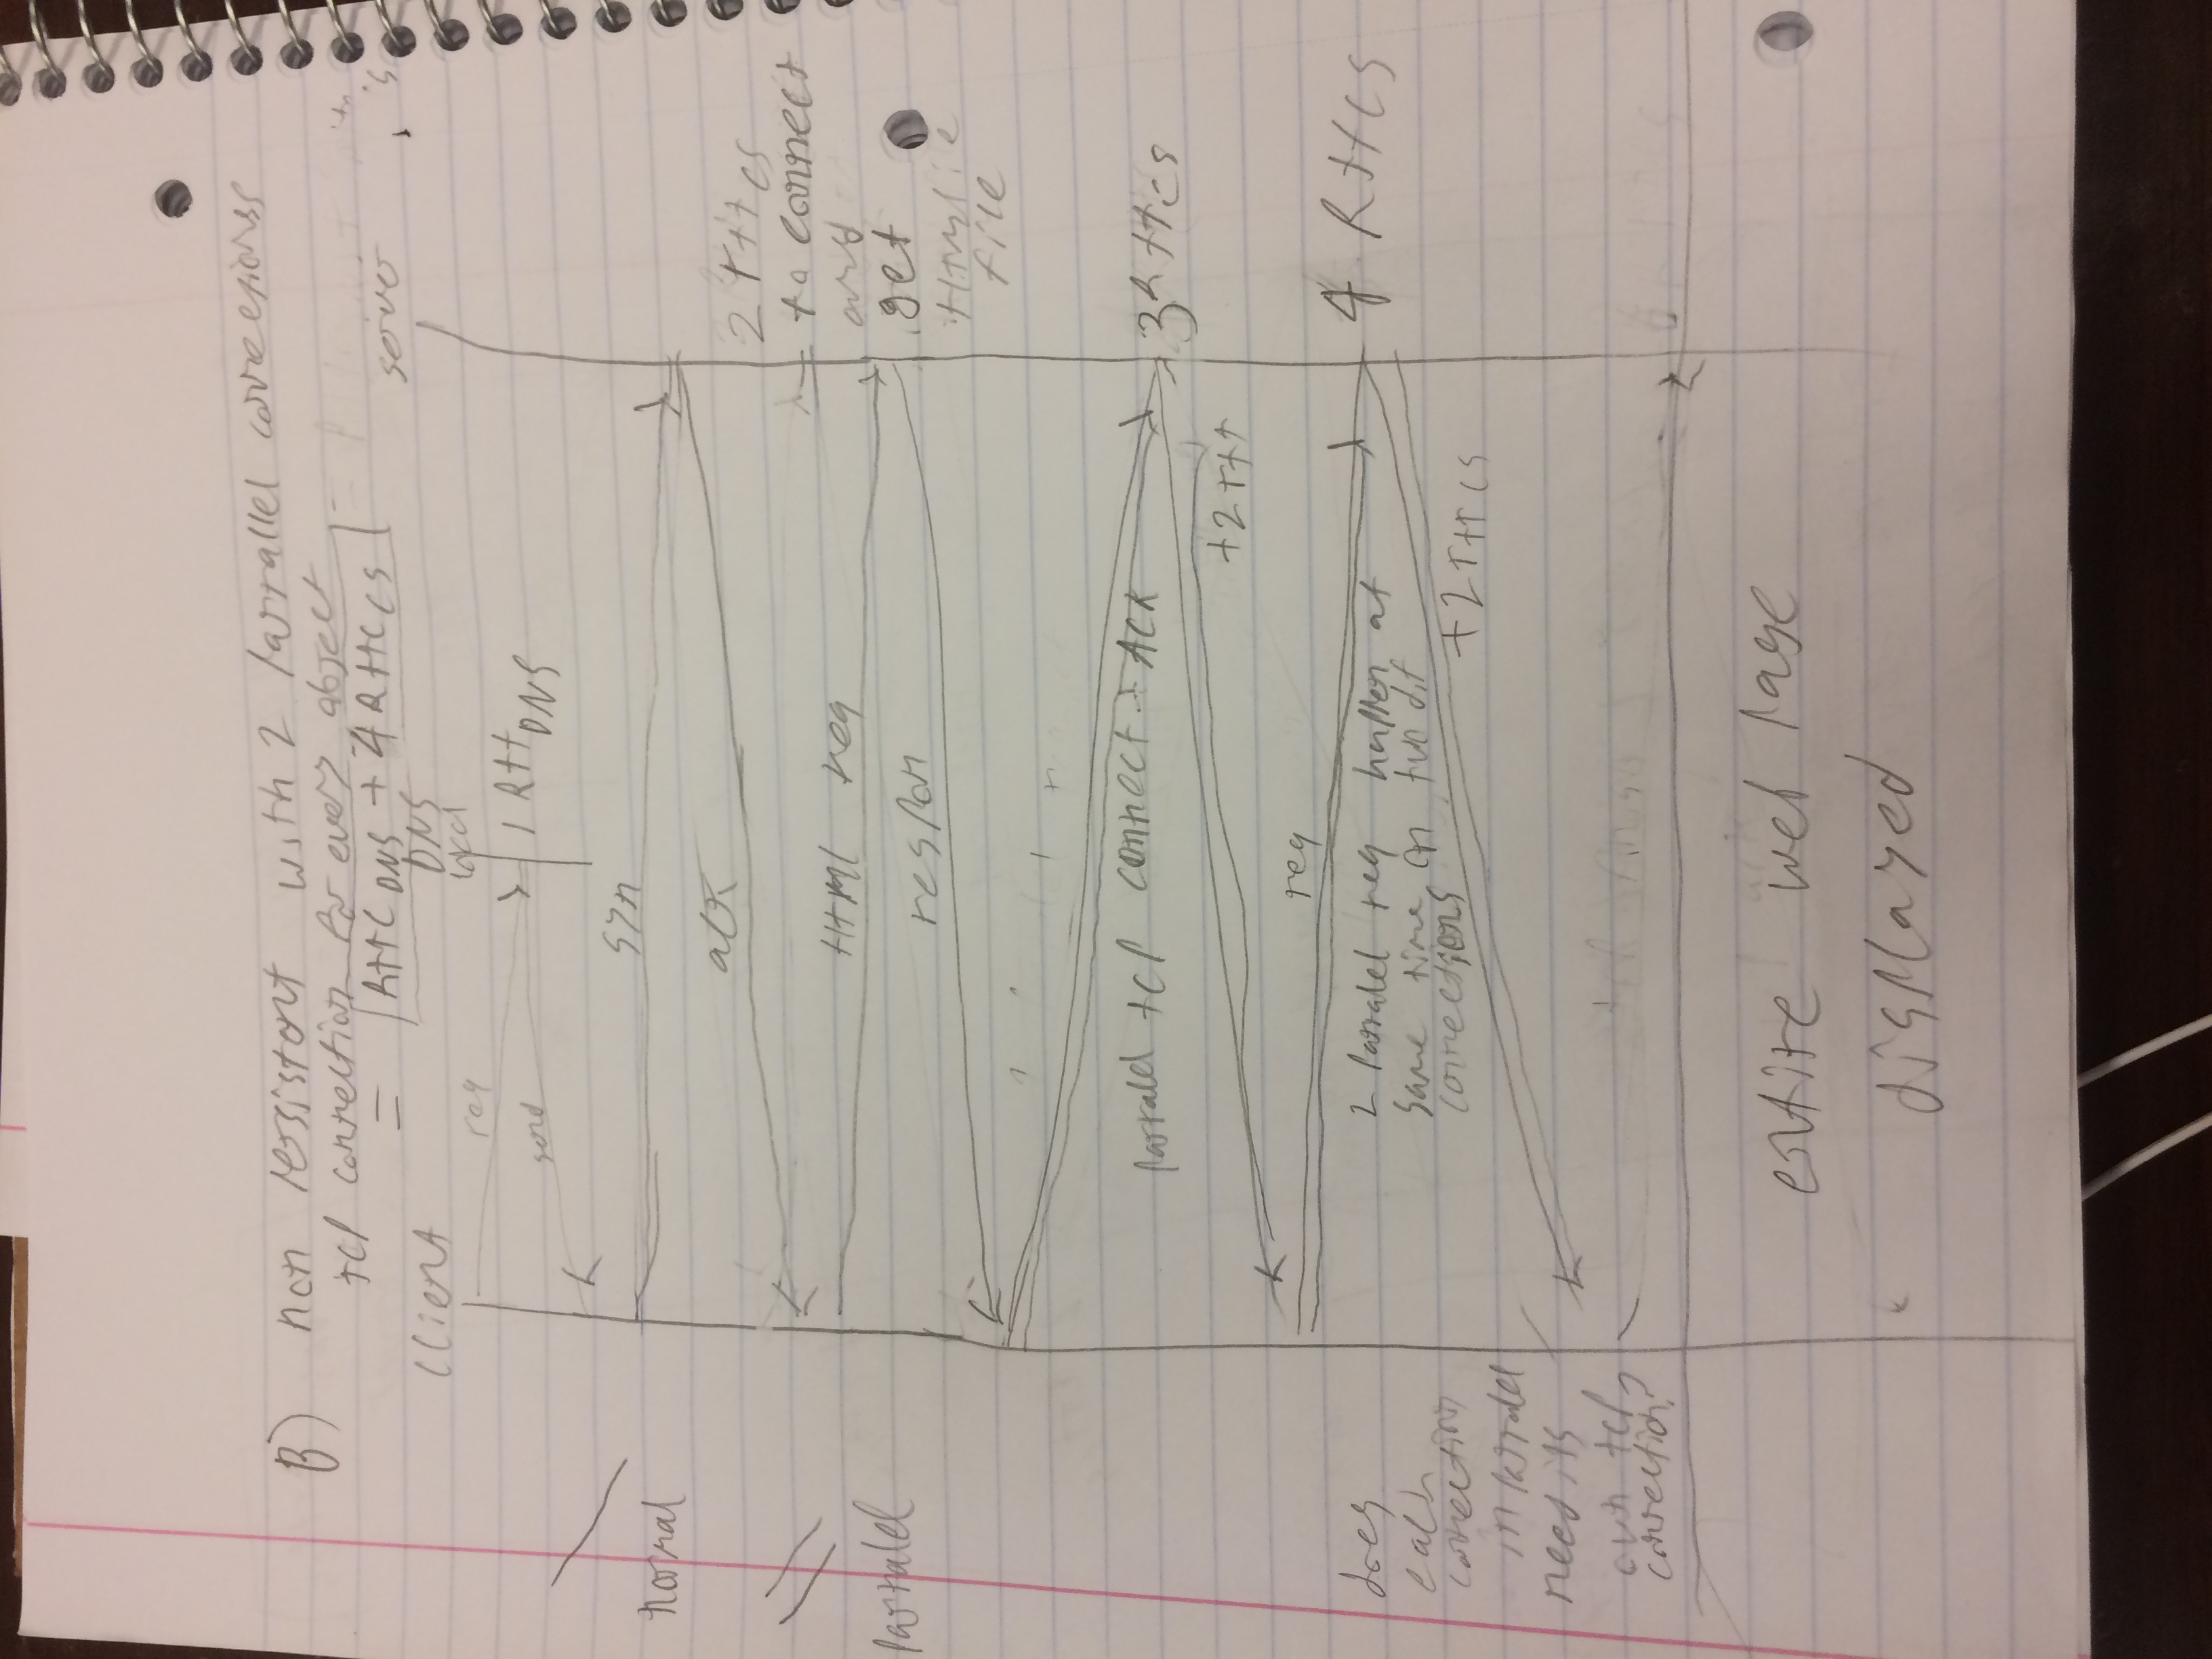 B) non persistent with 2 parrallel connectionss
tcp connection for every object
= RttC DNS + 4 RttC CS
client
DNS
local
server
req
send
1 Rtt DNS
syn
normal
ack
2 rtt cs
to connect
and
get
Html ie
file
Html req
respon
parralel
parralel tcp connect + ACK
3 Rtt cs
+2 rtt
req
4 Rtt cs
2 parralel req happen at
same time on two dif
connections
+2 rtt cs
does
each
connection
in parralel
need its
own tcp
connection?
entire web page
displayed